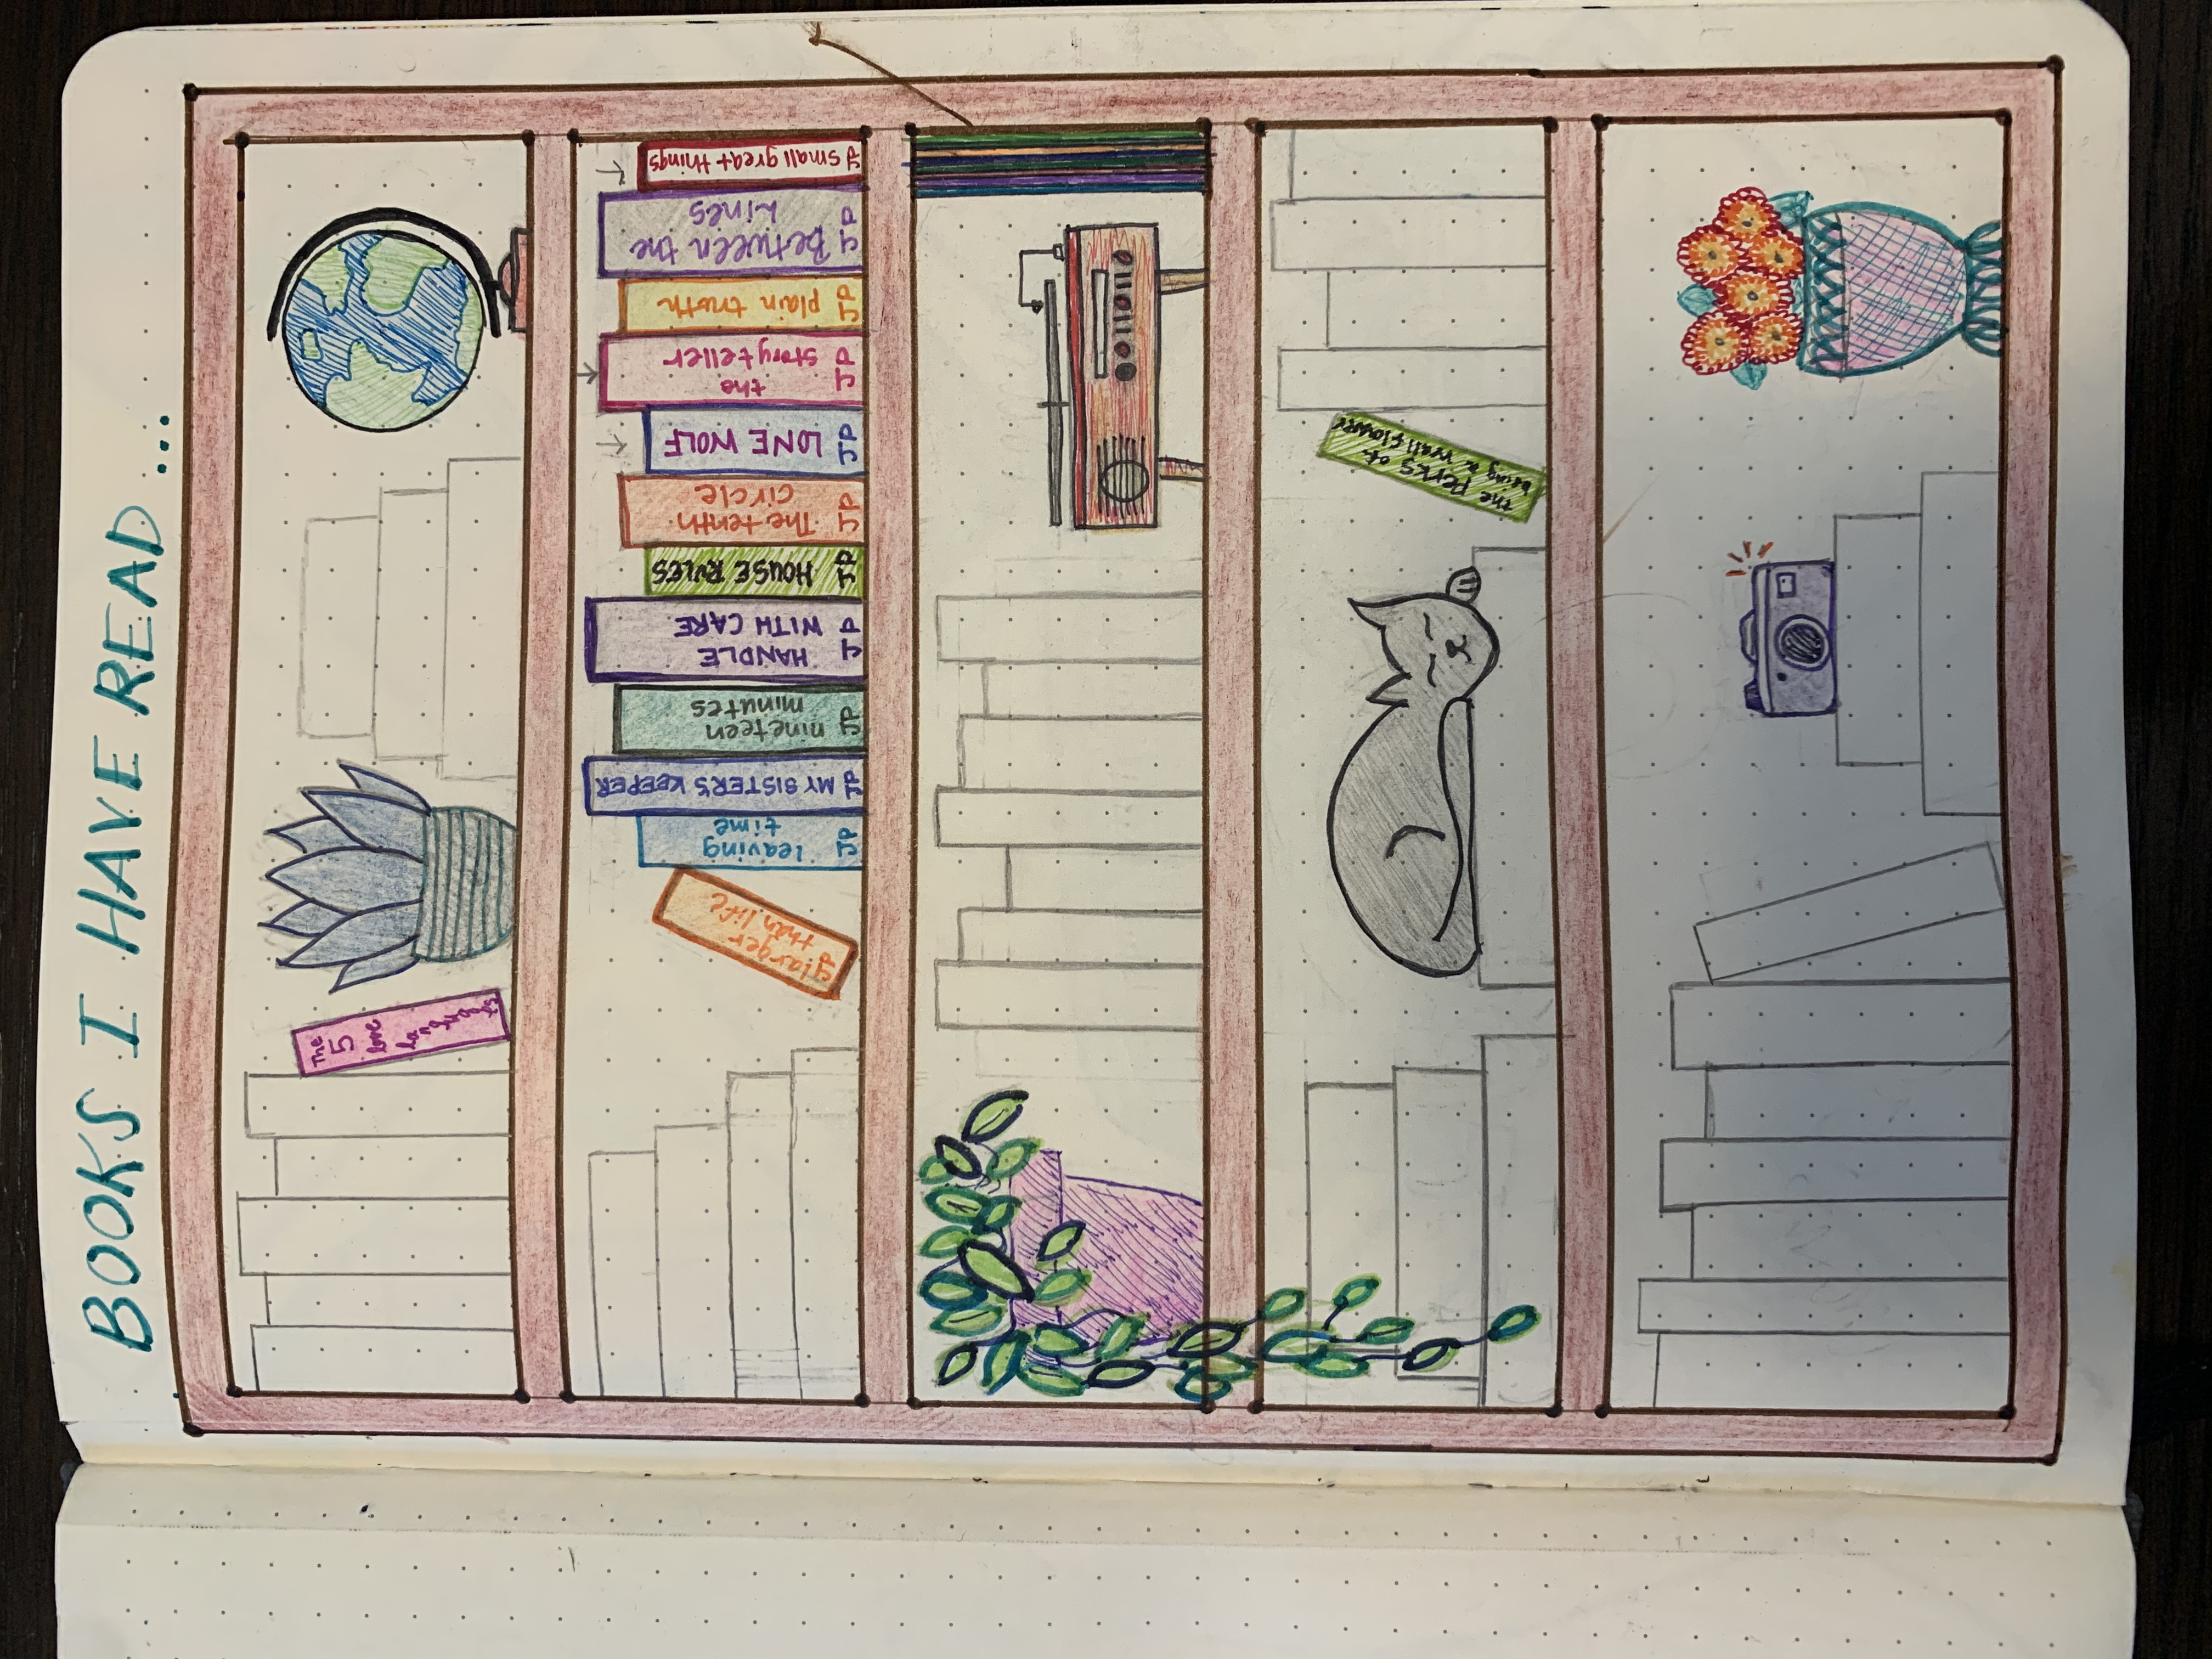 BOOKS I HAVE READ...
The
5
love
languages
JP larger
than life
JP leaving
time
JP MY SISTER'S KEEPER
JP nineteen
minutes
JP HANDLE
WITH CARE
JP HOUSE RULES
JP The tenth
circle
JP LONE WOLF
JP the
storyteller
JP plain truth
JP Between the
Lines
JP small great things
the Perks of
being a wallflower